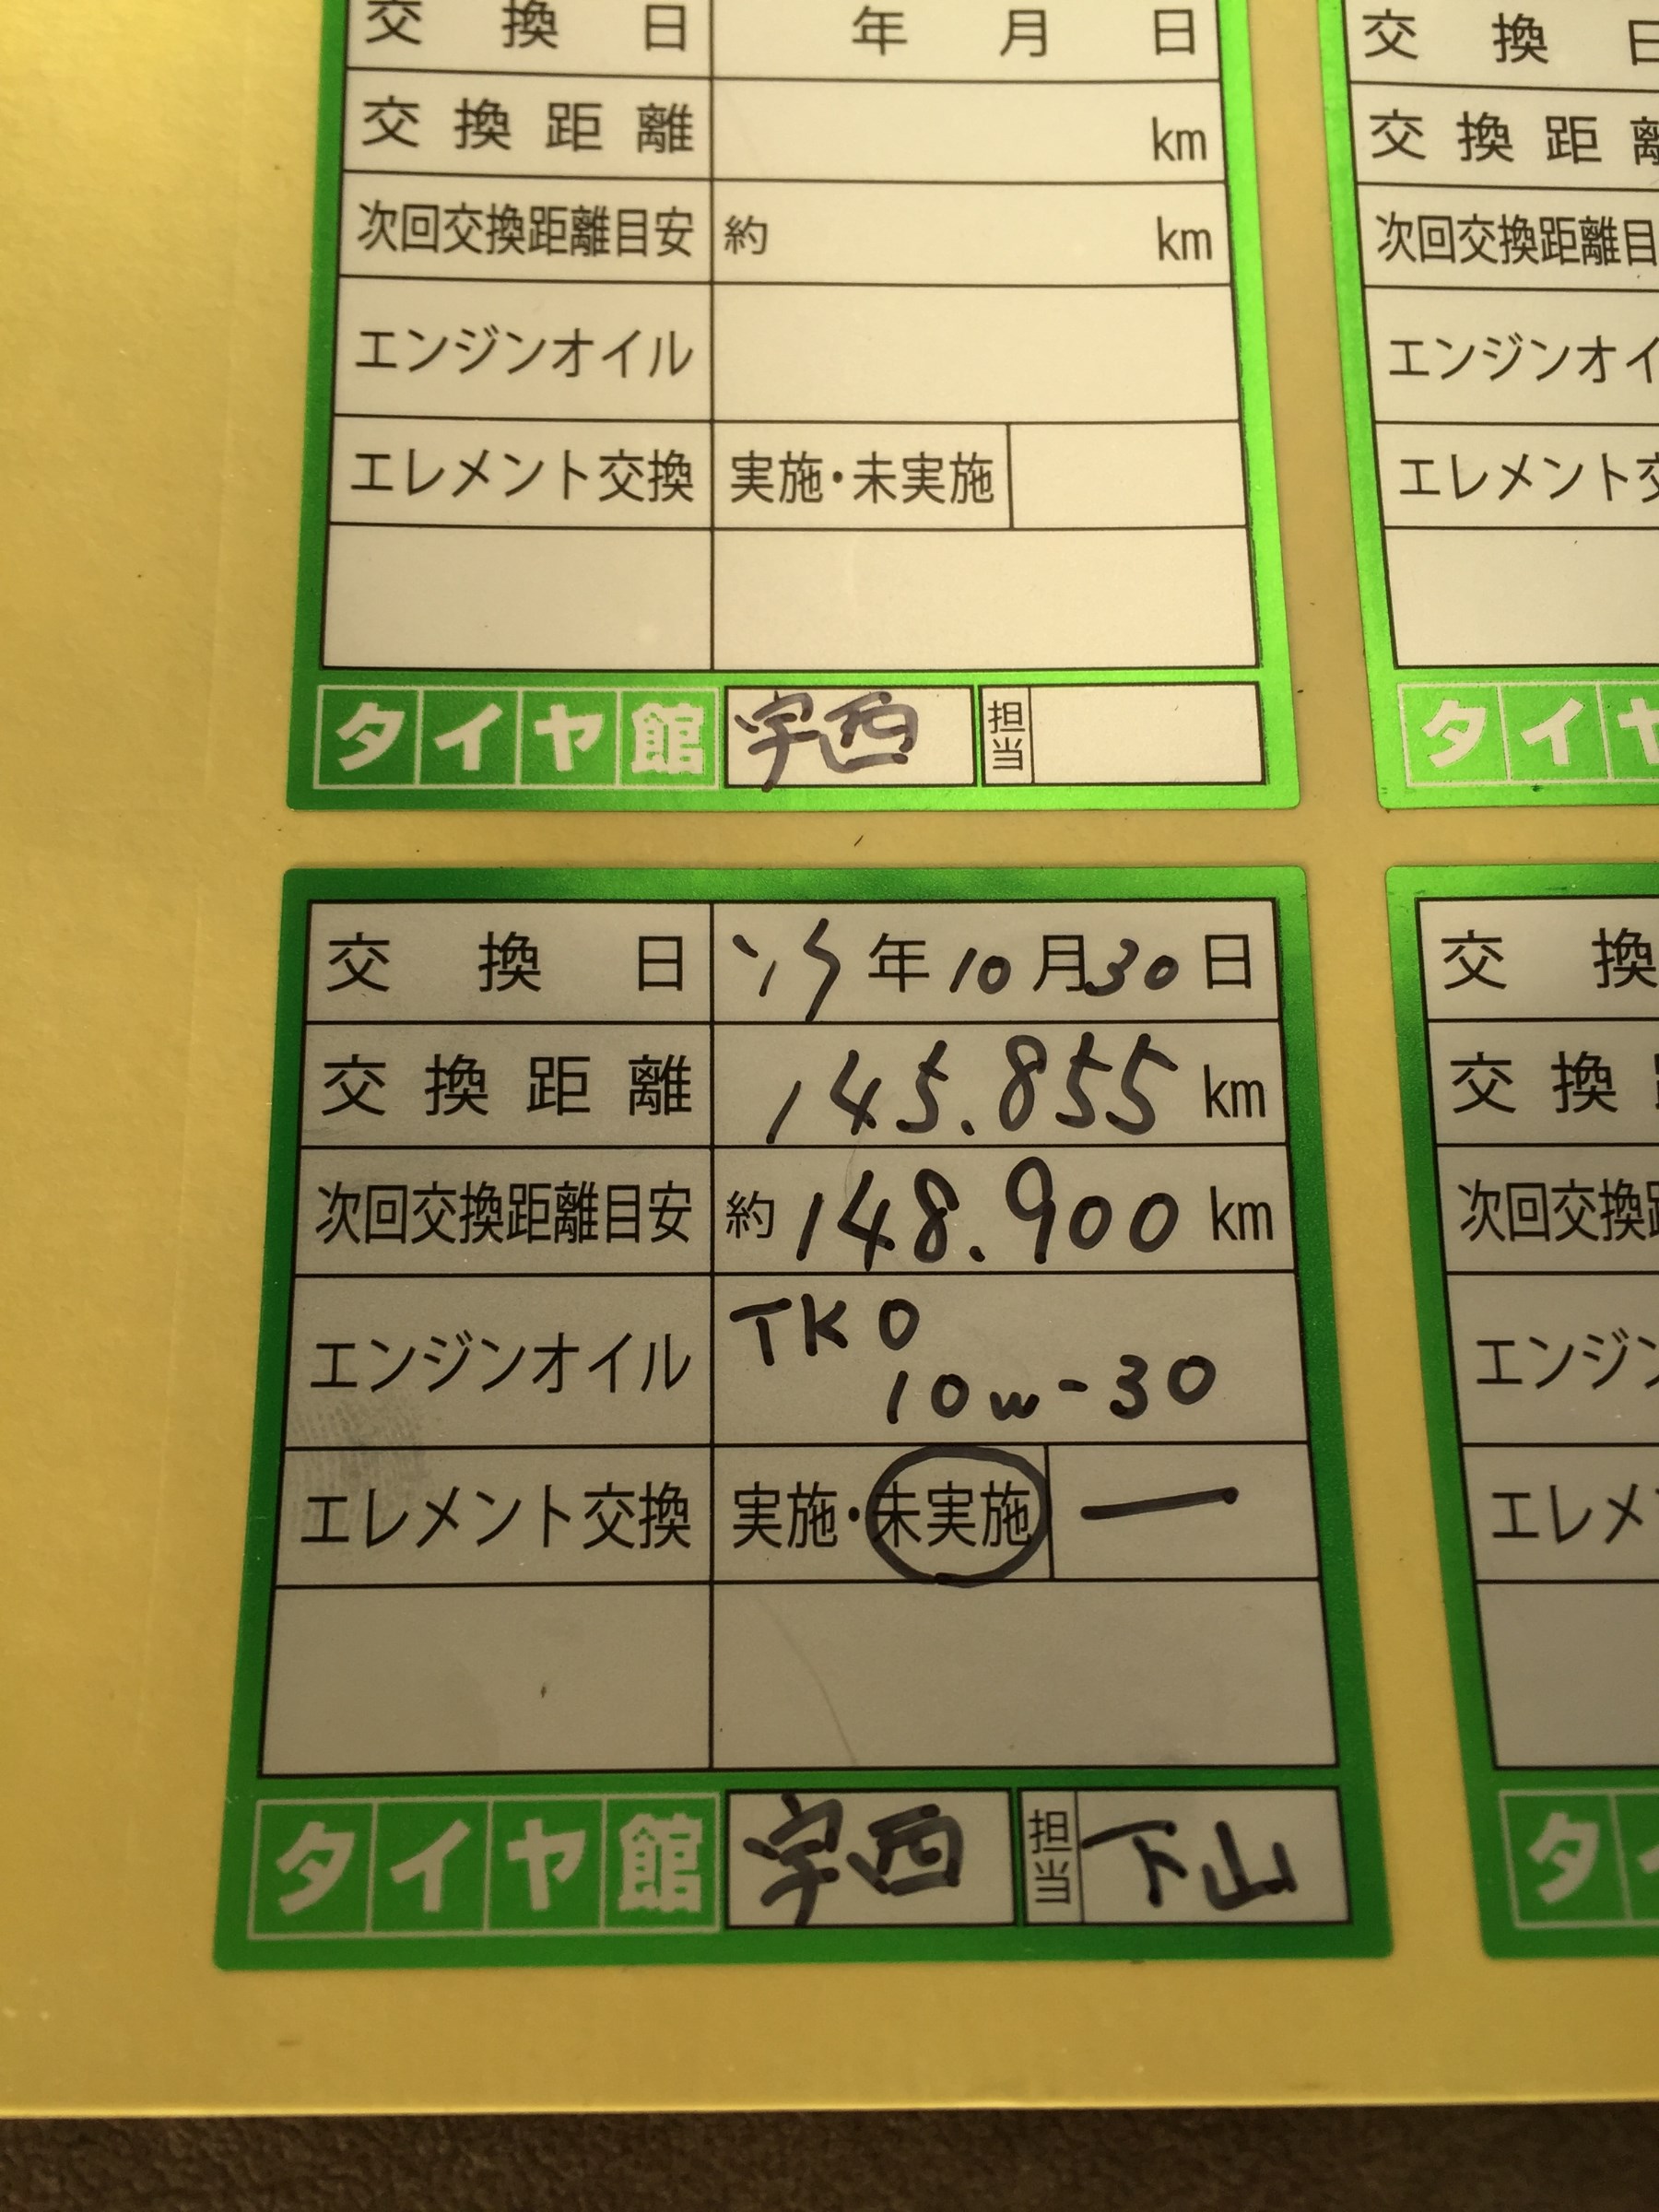 交換日 年 月 日
交換距離 km
次回交換距離目安 約 km
エンジンオイル
エレメント交換 実施・未実施
タイヤ館 宇西 担当
交換日
交換距離
次回交換距離目
エンジンオイ
エレメント交
タイヤ
交換日 '15年10月30日
交換距離 145.855 km
次回交換距離目安 約148.900 km
エンジンオイル TKO
10w-30
エレメント交換 実施・未実施 ー
タイヤ館 宇西 担当 下山
交換
交換
次回交換
エンジン
エレメ
タ